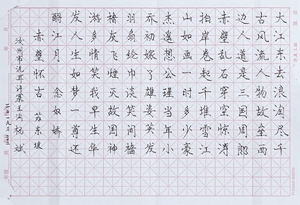 大江东去浪淘尽千
古风流人物故垒西
边人道是三国周郎
赤壁乱石穿空惊涛
拍岸卷起千堆雪江
山如画一时多少豪
杰遥想公瑾当年小
乔初嫁了雄姿英发
羽扇纶巾谈笑间
灰飞烟灭故国神
游多情笑我早生华
发人生如梦一尊还
酹江月 念奴娇
赤壁怀古 苏东坡
汝州市